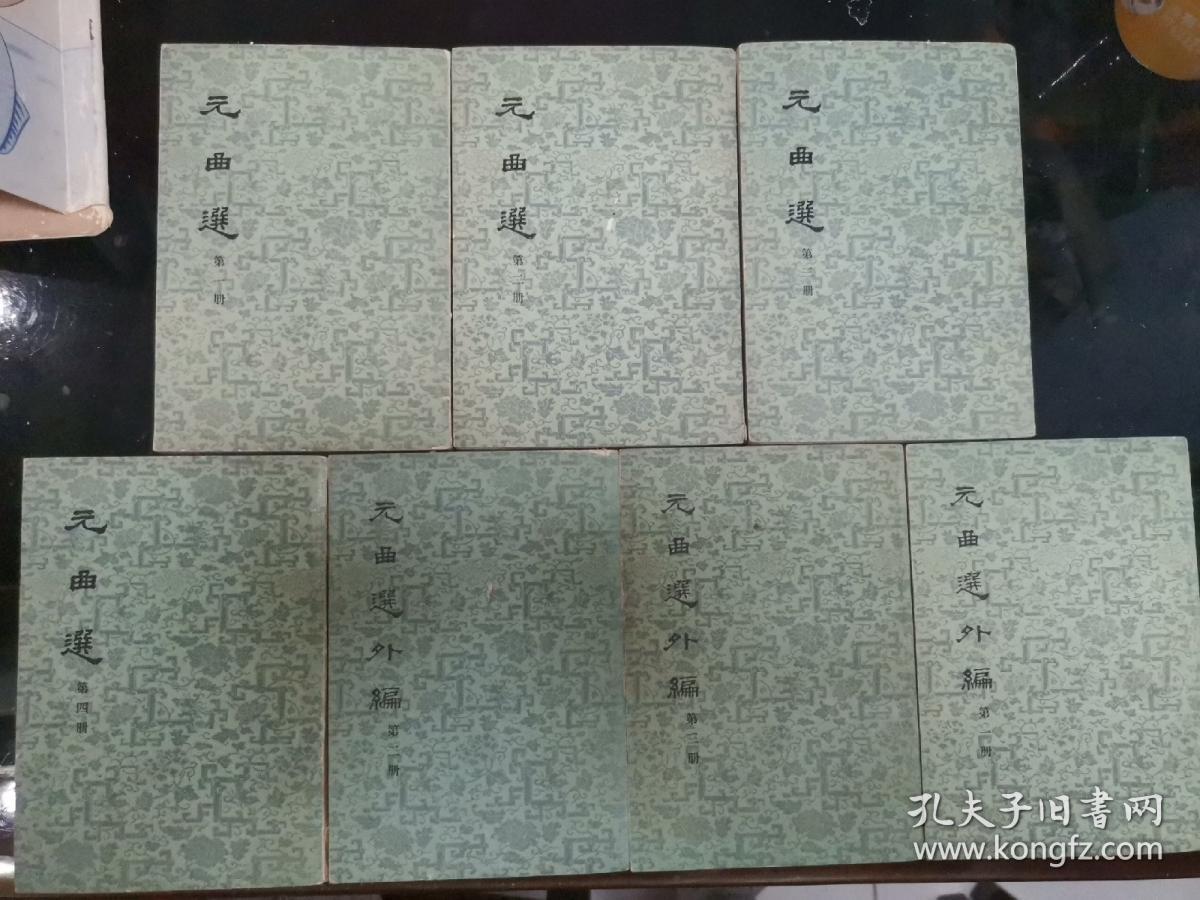 元曲選
第一册
元曲選
第二册
元曲選
第三册
元曲選
第四册
元曲選外編
第二册
元曲選外編
第三册
元曲選外編
第一册
孔夫子旧书网
www.kongfz.com